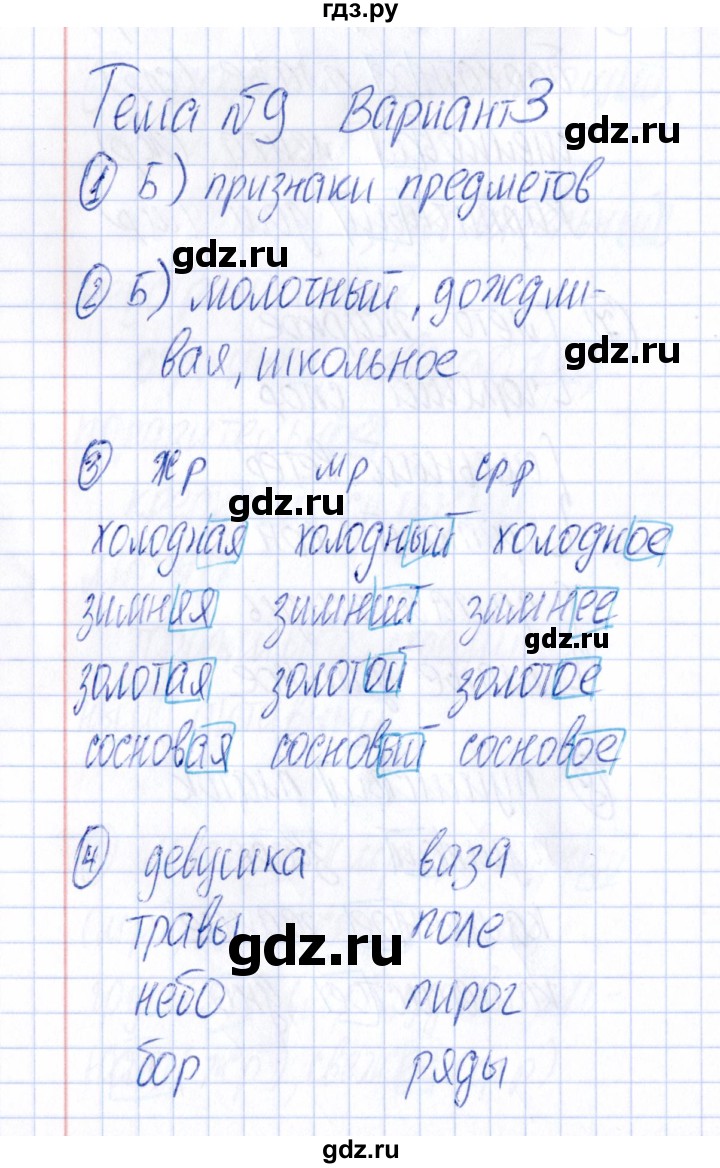 гдз.ру
Тема №9 Вариант 3
gdz.ru
① Б) признаки предметов
gdz.ru
② Б) молочный, дождли-
gdz.ru
вая, школьное
③ жр мр срр
gdz.ru
холодная холодный холодное
зимняя зимний зимнее
gdz.ru
золотая золотой золотое
сосновая сосновый сосновое
④ девушка ваза
травы поле
gdz.ru
небо пирог
бор ряды
gdz.ru